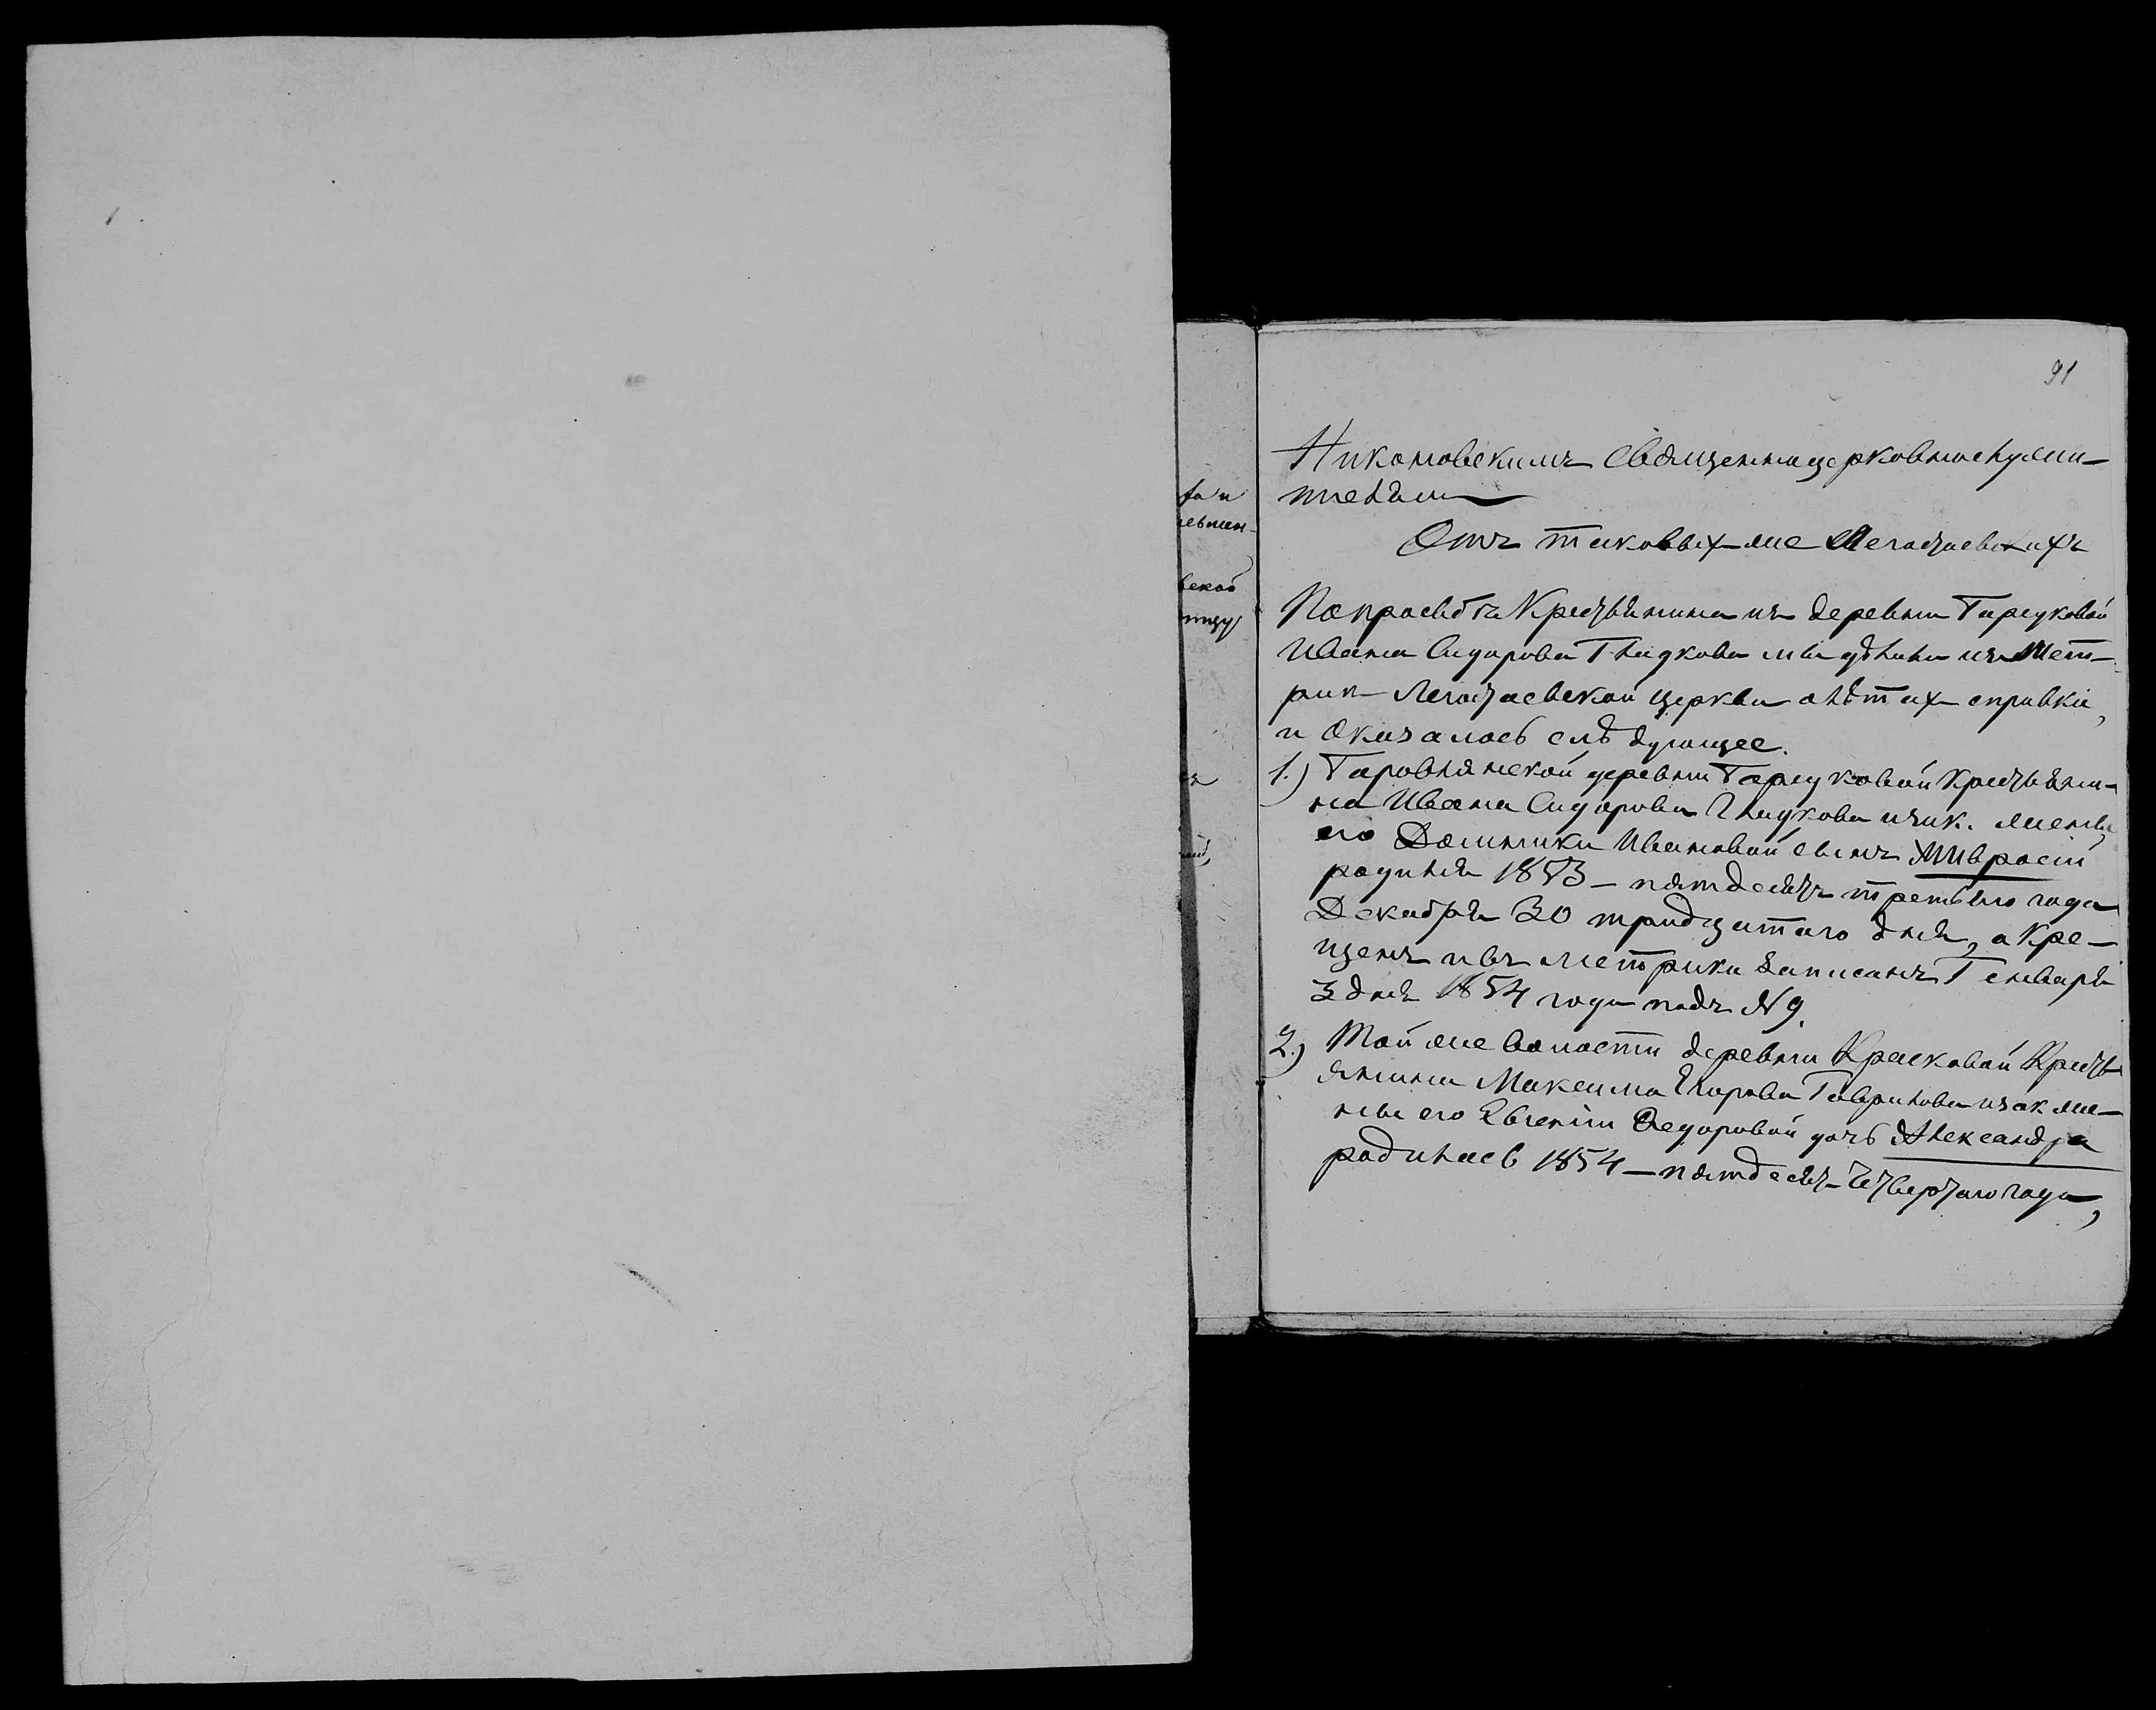 91
Никоновскимъ священноцерковнослужи-
телям
Отъ таковых же Легостаевскихъ
По прозьбѣ Крестьянина из деревни Гарсуковой
Ивана Сидорова Гладкова мы дѣлали из мет-
рик Легостаевской церкви о лѣтах справки,
и Оказалось слѣдующее.
1.) деревни Гарсуковой Крестьяни-
на Ивана Сидорова Гладкова и зак. жены
его Домники Ивановой сынъ Амвросiй
родился 1853 - пятдесятъ третьяго года
Декабря 30 тридцатаго дня, а Кре-
щенъ и въ метрики записанъ Генваря
3 дня 1854 года подъ N 9.
2.) Той же волости деревни Красковой Кресть
янина Максима Егорова Гаврилова и зак же-
ны его Евгенiи Федоровой дочь Александра
родилась 1854 - пятдесят четвертаго года,